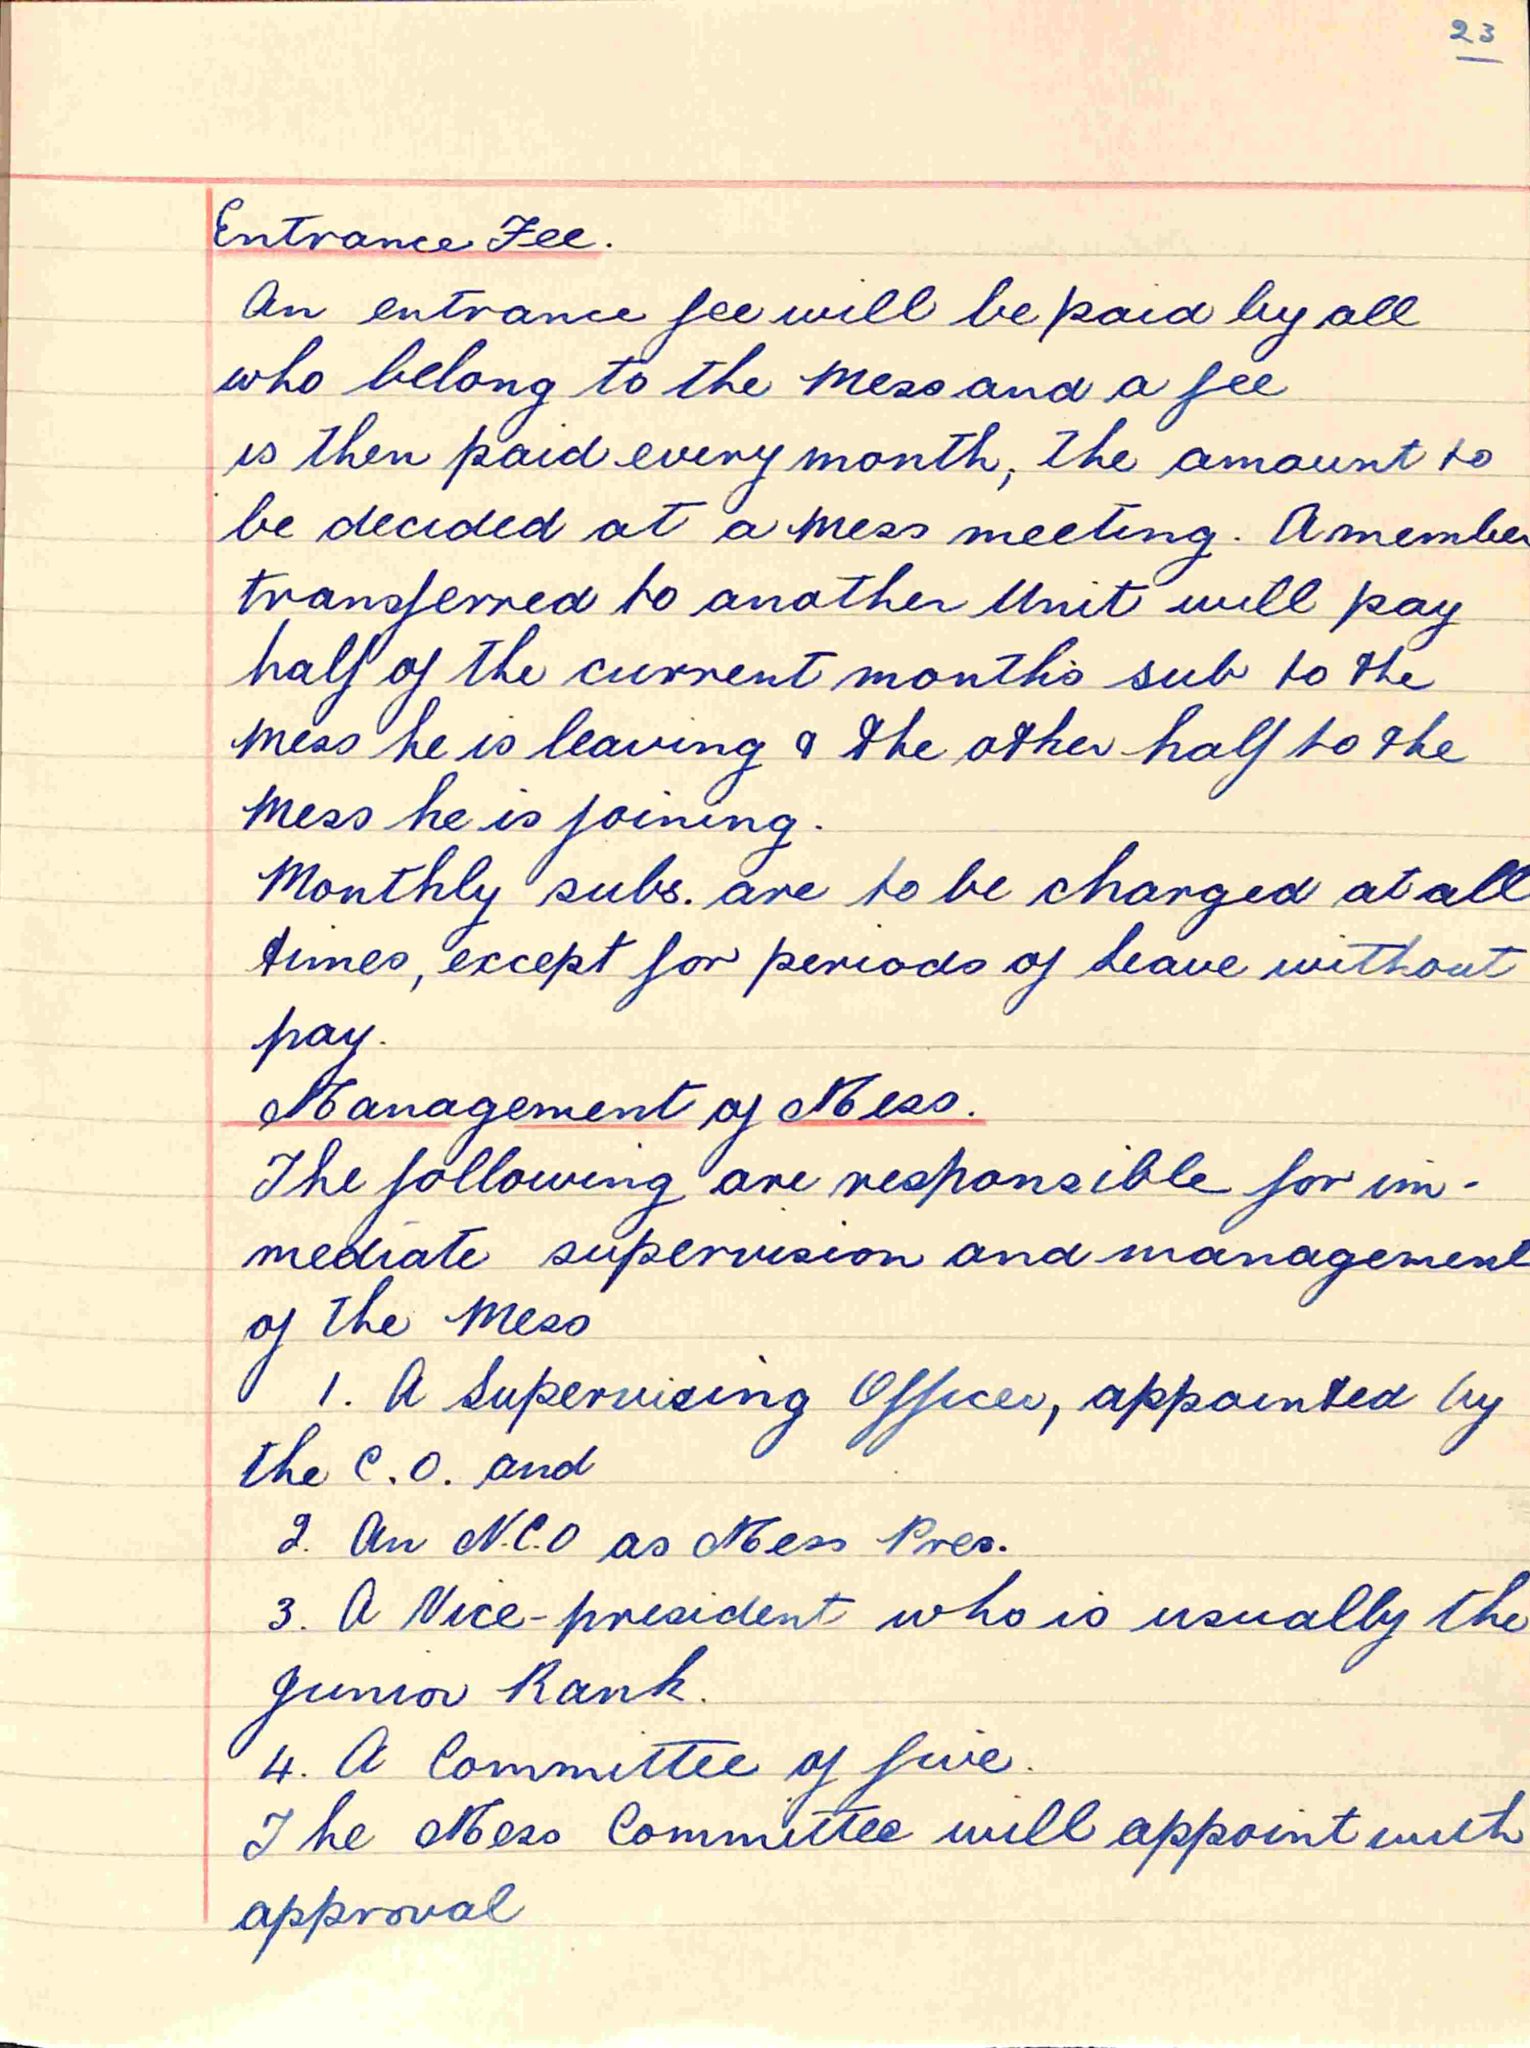 23
Entrance Fee.
An entrance fee will be paid by all
who belong to the Mess and a fee
is then paid every month, the amount to
be decided at a Mess meeting. A member
transferred to another Unit will pay
half of the current month's sub to the
Mess he is leaving & the other half to the
Mess he is joining.
Monthly subs. are to be charged at all
times, except for periods of leave without
pay.
Management of Mess.
The following are responsible for im-
mediate supervision and management
of the Mess
1. A Supervising Officer, appointed by
the C.O. and
2. An N.C.O as Mess Pres.
3. A Vice-president who is usually the
Junior Rank.
4. A Committee of five.
The Mess Committee will appoint with
approval